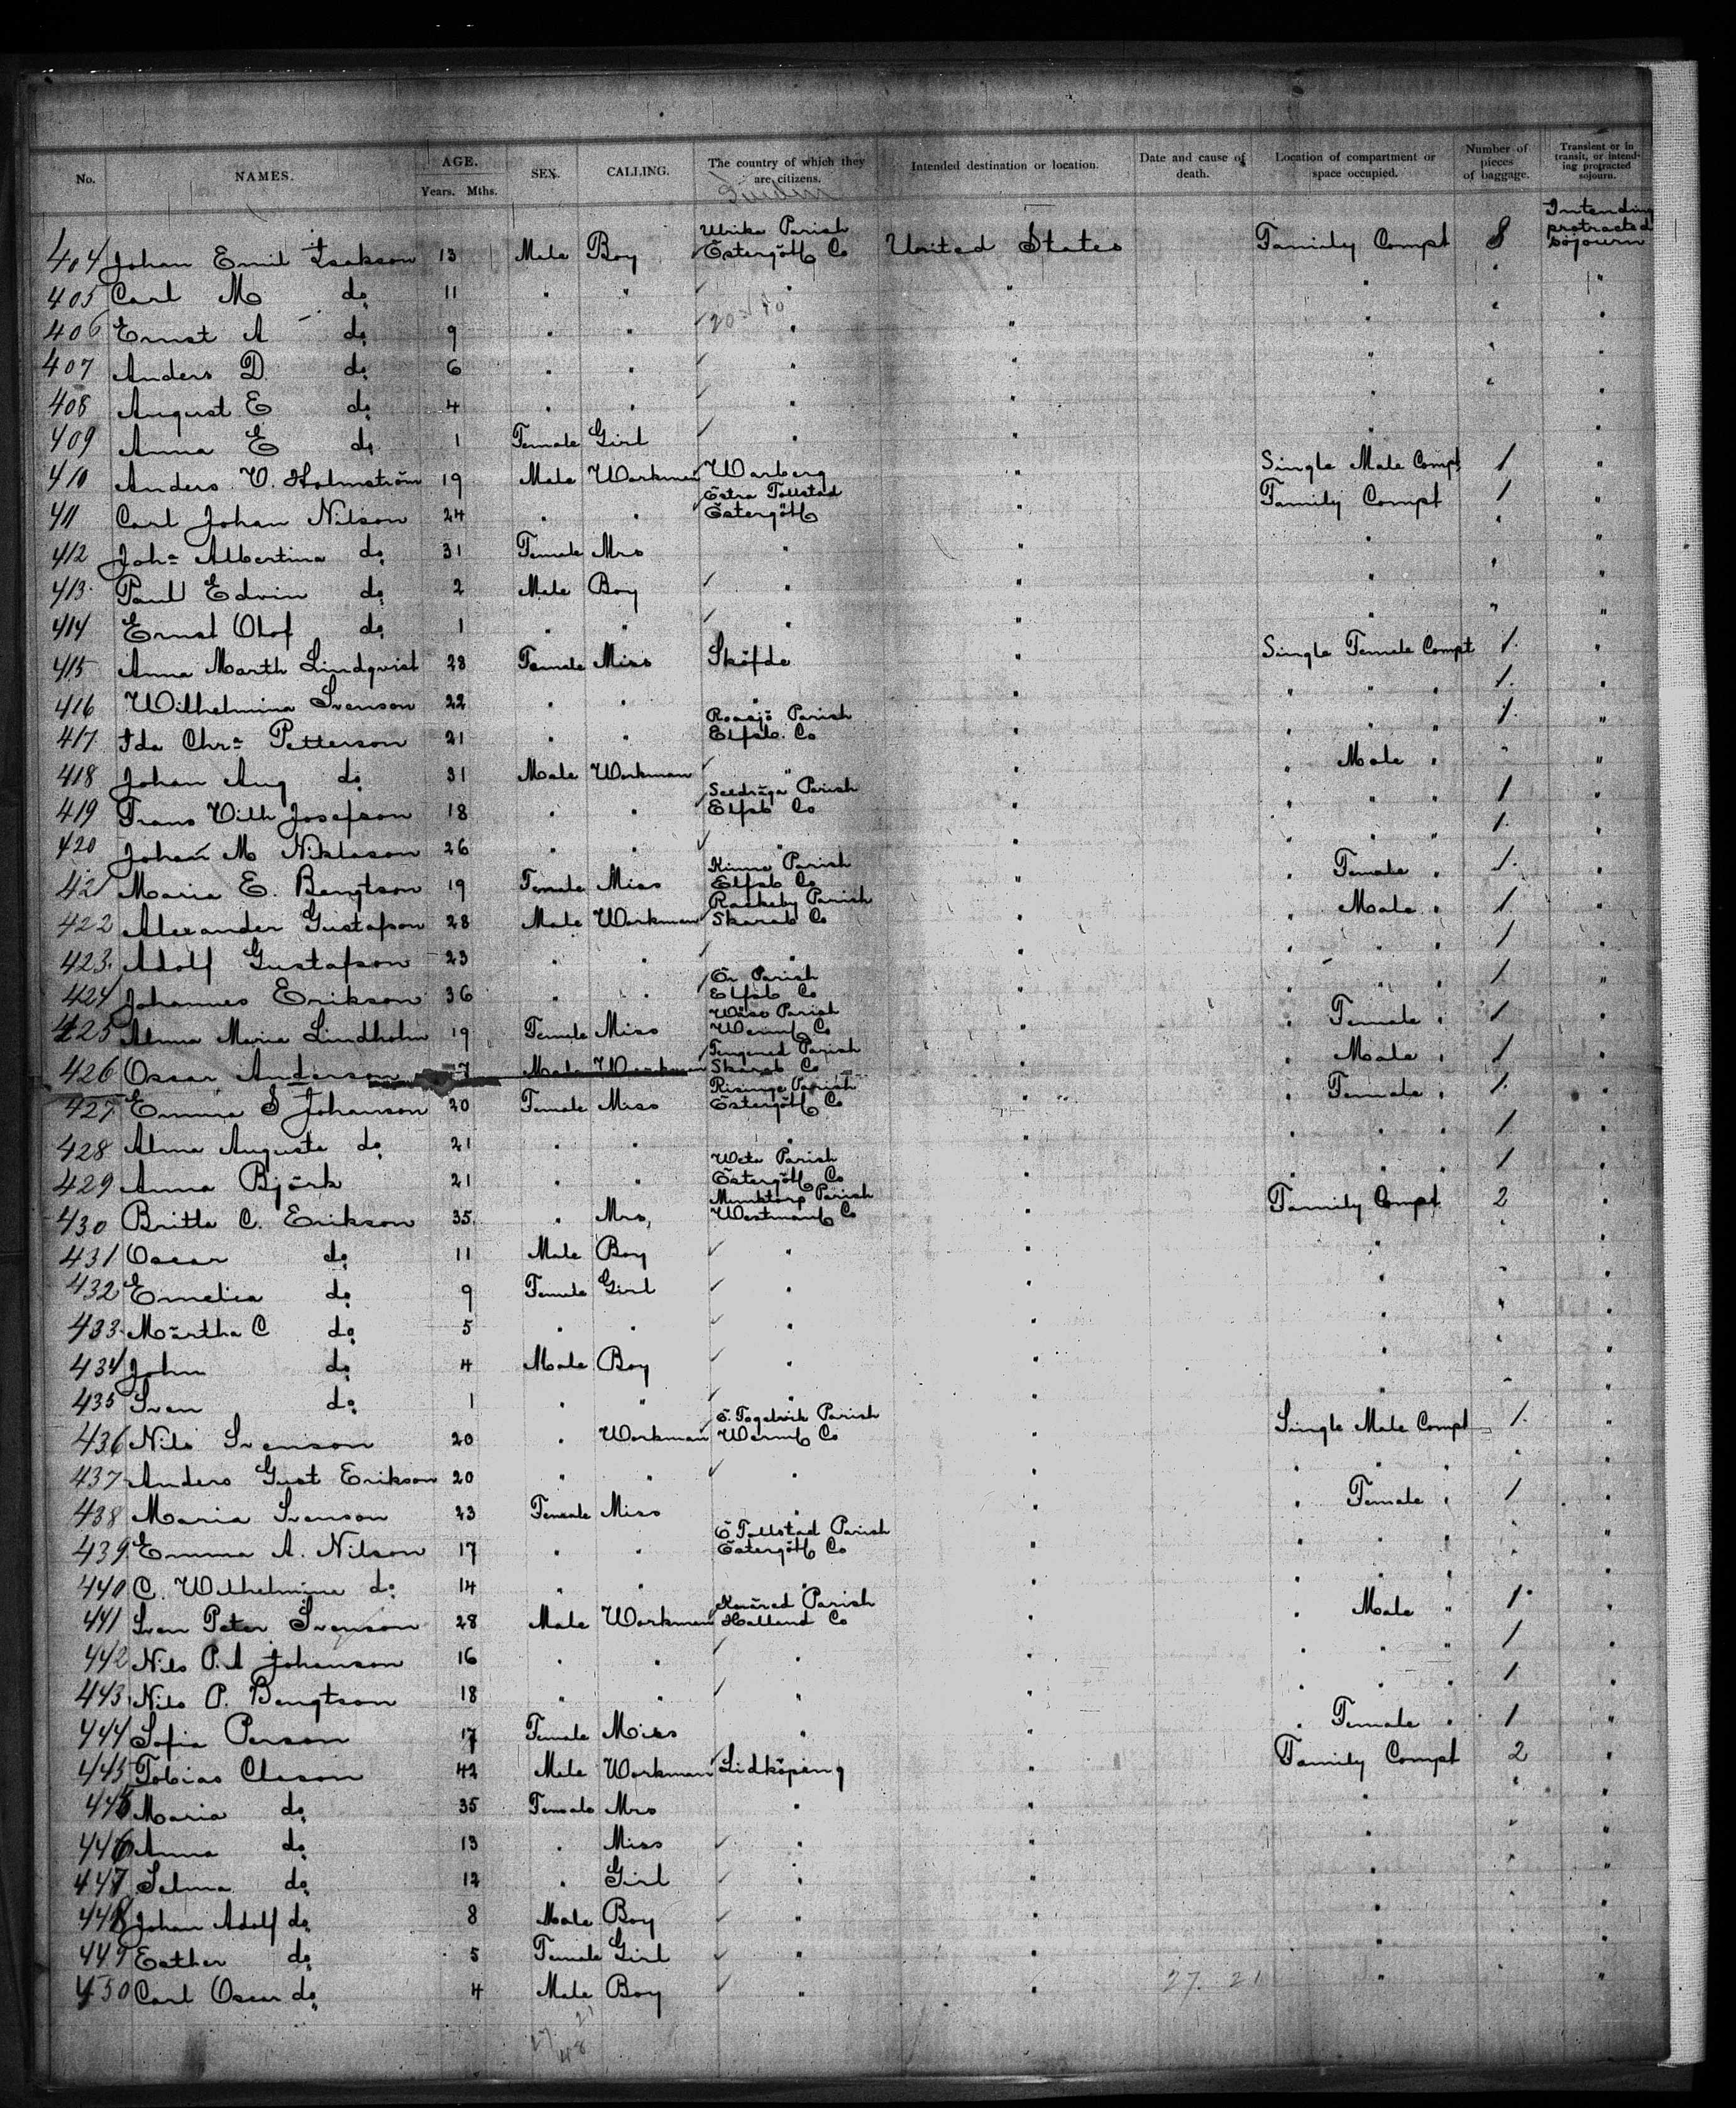 No. NAMES. AGE. Years. Mths. SEX. CALLING. The country of which they are citizens. Intended destination or location. Date and cause of death. Location of compartment or space occupied. Number of pieces of baggage. Transient or in transit, or intending protracted sojourn.
404 Johan Emil Isakson 13 Male Boy Ulrika Parish Östergötl Co United States Family Compt 8 Intending protracted sojourn
405 Carl M do 11 " " " " " " "
406 Ernst A do 9 " " " " " " "
407 Anders D. do 6 " " " " " " "
408 August E do 4 " " " " " " "
409 Anna E do 1 Female Girl " " " "
410 Anders V. Holmström 19 Male Workman Warberg " Single Male Compt 1 "
411 Carl Johan Nilson 24 " " Östra Tollstad Östergötl " Family Compt 1 "
412 Joha Albertina do 31 Female Mrs " " " " "
413 Paul Edvin do 2 Male Boy " " " " "
414 Ernst Olof do 1 " " " " " " "
415 Anna Marth Lindqvist 28 Female Miss Sköfde " Single Female Compt 1. "
416 Wilhelmina Svenson 22 " " " " " " " 1. "
417 Ida Chra Petterson 21 " " Roasjö Parish Elfsb. Co " " " " 1. "
418 Johan Aug do 31 Male Workman " " " Male " " "
419 Frans Vilh Josefson 18 " " Parish Elfsb Co " " " " 1 "
420 Johan M Niklason 26 " " " " " " " 1. "
421 Maria E. Bengtson 19 Female Miss Kinna Parish Elfsb Co " " Female " 1. "
422 Alexander Gustafson 28 Male Workman Rackeby Parish Skarab Co " " Male " 1 "
423. Adolf Gustafson 23 " " " " " " " 1 "
424 Johannes Erikson 36 " " Ör Parish Elfsb Co " " " " 1 "
425 Alma Maria Lindholm 19 Female Miss Wäse Parish Werml Co " " Female " 1 "
426 Oscar Anderson 7 Male Workman Tengened Parish Skarab Co " Male " 1 "
427 Emma S Johanson 20 Female Miss Risinge Parish Östergötl Co " " Female " 1. "
428 Alma Augusta do 21 " " " " " " " 1 "
429 Anna Björk 21 " " Weta Parish Östergötl Co " " " " 1 "
430 Britta C. Erikson 35. " Mrs, Munktorp Parish Westmanl Co " Family Compt 2 "
431 Oscar do 11 Male Boy " " " " "
432 Emelia do 9 Female Girl " " " " "
433. Märtha C do 5 " " " " " " "
434 John do 4 Male Boy " " " " "
435 Sven do 1 " " " " " " "
436 Nils Svenson 20 " Workman Ö. Parish Werml Co " Single Male Compt 1. "
437 Anders Gust Erikson 20 " " " " " " " " "
438 Maria Svenson 23 Female Miss " " " Female " 1 "
439. Emma A. Nilson 17 " " Ö Tollstad Parish Östergötl Co " " " " " "
440 C. Wilhelmina do 14 " " " " " " " " "
441 Sven Peter Svenson 28 Male Workman Parish Halland Co " " Male " 1 "
442 Nils P. A Johanson 16 " " " " " " " 1 "
443 Nils P. Bengtson 18 " " " " " " " 1 "
444 Sofia Person 17 Female Miss " " " Female " 1 "
445 Tobias Cleson 42 Male Workman Lidköping " Family Compt 2 "
445 Maria do 35 Female Mrs " " " " "
446 Anna do 13 " Miss " " " " "
447 Selma do 12 " Girl " " " " "
448 Johan Adolf do 8 Male Boy " " " " "
449 Esther do 5 Female Girl " " " " "
450 Carl Oscar do 4 Male Boy " " 27. 21 " " "
27 21
48